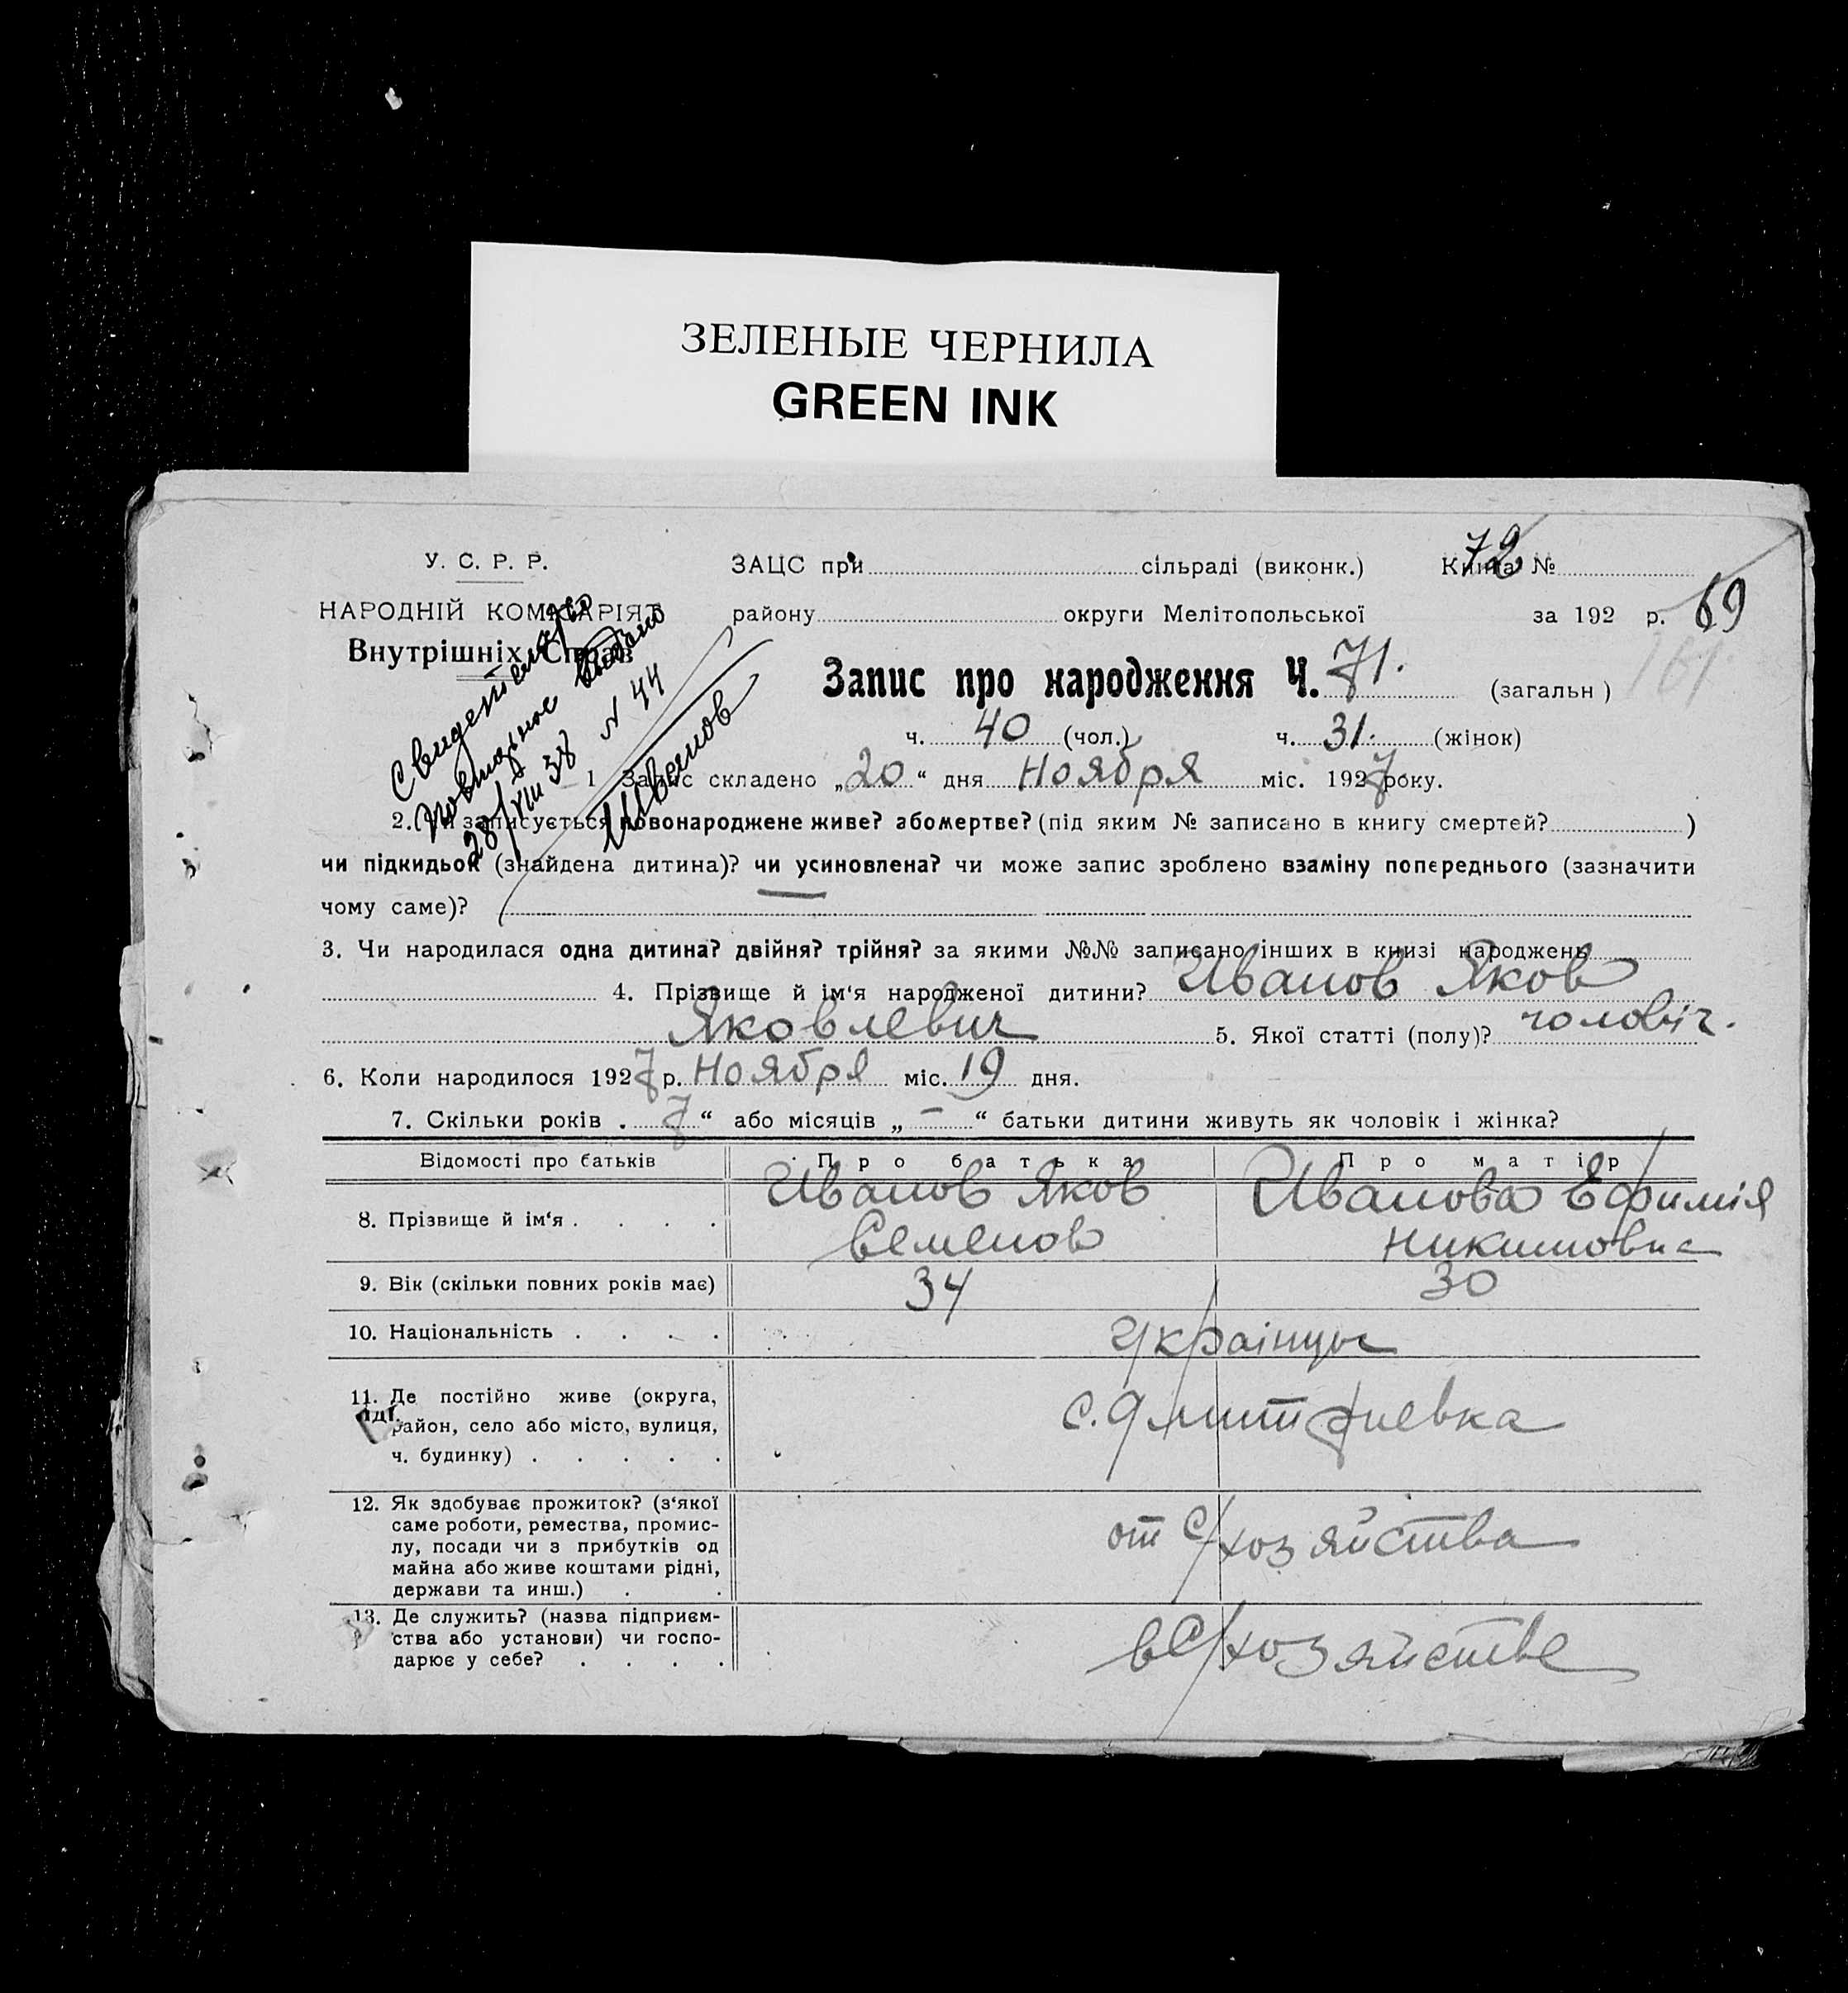 ЗЕЛЕНЫЕ ЧЕРНИЛА
GREEN INK
У. С. Р. Р.
НАРОДНІЙ КОМІСАРІЯТ
Внутрішніх Справ
ЗАЦС при сільраді (виконк.) Книга № 72
району округи Мелітопольської за 192 р. 69
Запис про народження Ч. 71. (загальн)
ч. 40 (чол.) ч. 31. (жінок)
Свидетельство
повторное выдано
28/VIII 38 N 44
1 Запис складено „20“ дня Ноября міс. 1927 року.
2. Чи записується новонароджене живе? або мертве? (під яким № записано в книгу смертей? )
чи підкидьок (знайдена дитина)? чи усиновлена? чи може запис зроблено взаміну попереднього (зазначити
чому саме)?
3. Чи народилася одна дитина? двійня? трійня? за якими №№ записано інших в книзі народжень
4. Прізвище й ім‘я народженої дитини? Иванов Яков
Яковлевич 5. Якої статті (полу)? чоловіч.
6. Коли народилося 1927 р. Ноября міс. 19 дня.
7. Скільки років 7“ або місяців „—“ батьки дитини живуть як чоловік і жінка?
Відомості про батьків Про батька Про матір
8. Прізвище й ім‘я . . . . Иванов Яков Семенов Иванова Ефимія
9. Вік (скільки повних років має) 34 30
10. Національність . . . . Українцы
11. Де постійно живе (округа,
район, село або місто, вулиця,
ч. будинку) . . . . . с. Дмитриевка
12. Як здобуває прожиток? (з‘якої
саме роботи, ремества, промис-
лу, посади чи з прибутків од
майна або живе коштами рідні,
держави та инш.) . . от с/хозяйства
13. Де служить? (назва підприєм-
ства або установи) чи госпо-
дарює у себе? . . . . в с/хозяйстве